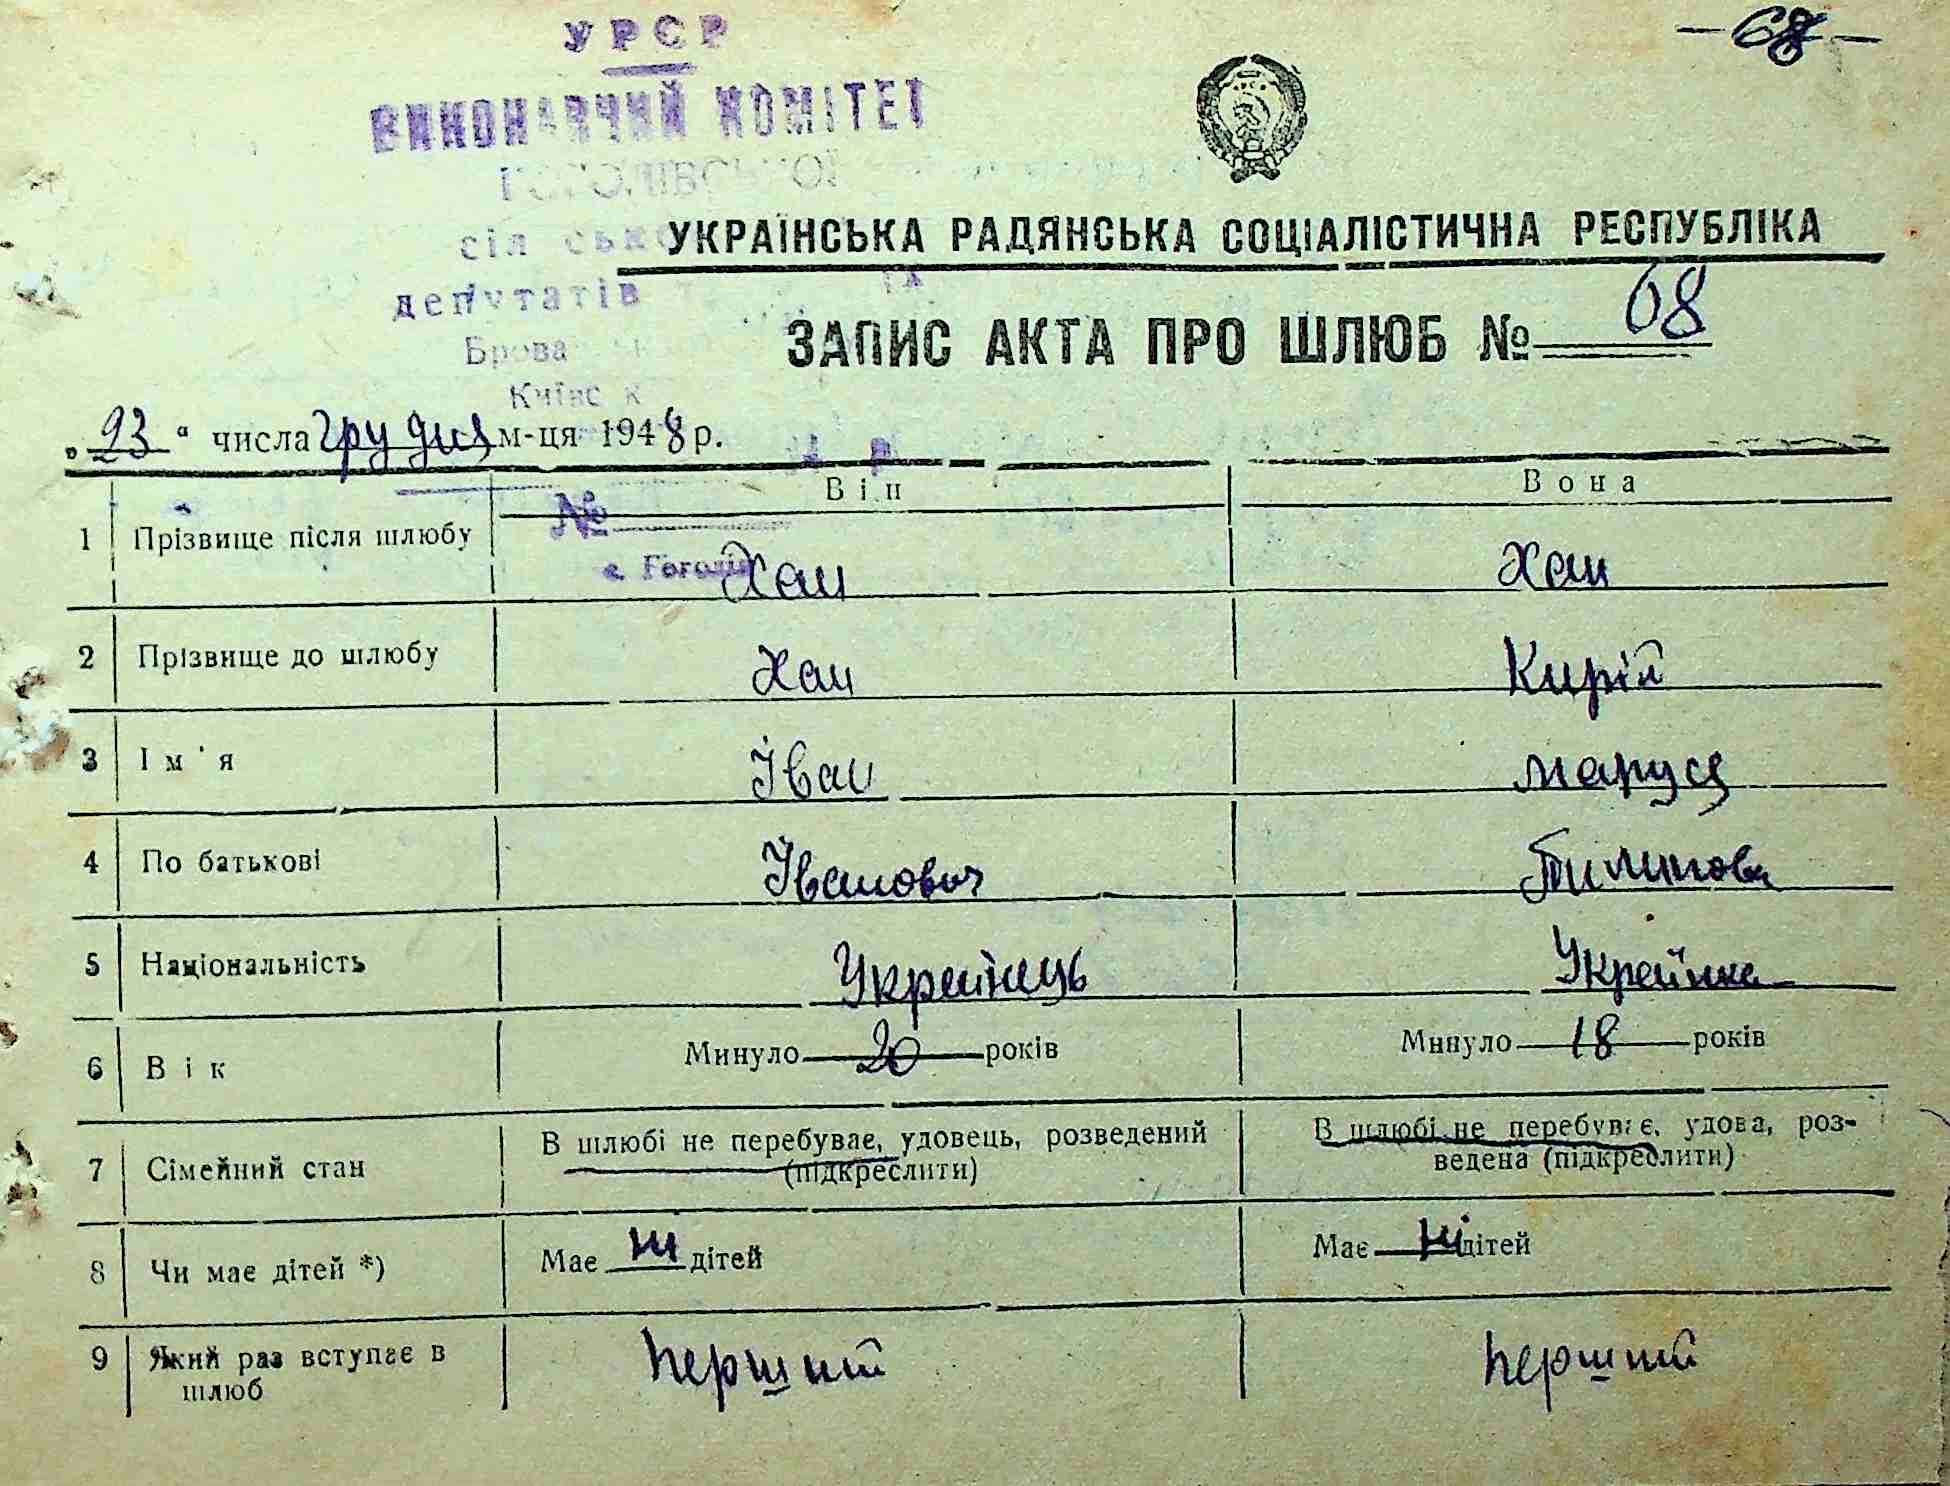 -68-
УРСР
ВИКОНАВЧИЙ КОМІТЕТ
ГОГОЛІВСЬКОЇ
сіл ськ
УКРАЇНСЬКА РАДЯНСЬКА СОЦІАЛІСТИЧНА РЕСПУБЛІКА
депутатів
ЗАПИС АКТА ПРО ШЛЮБ № 68
Брова
Київс к
„23“ числа грудня м-ця 1948 р.
Він Вона
№
с. Гоголів
1 Прізвище після шлюбу Хан Хан
2 Прізвище до шлюбу Хан Кирій
3 Ім'я Іван Маруся
4 По батькові Іванович
5 Національність Українець Українка
6 Вік Минуло 20 років Минуло 18 років
7 Сімейний стан В шлюбі не перебуває, удовець, розведений (підкреслити) В шлюбі не перебуває, удова, роз-
ведена (підкреслити)
8 Чи має дітей *) Має ні дітей Має ні дітей
9 Який раз вступає в шлюб перший перший